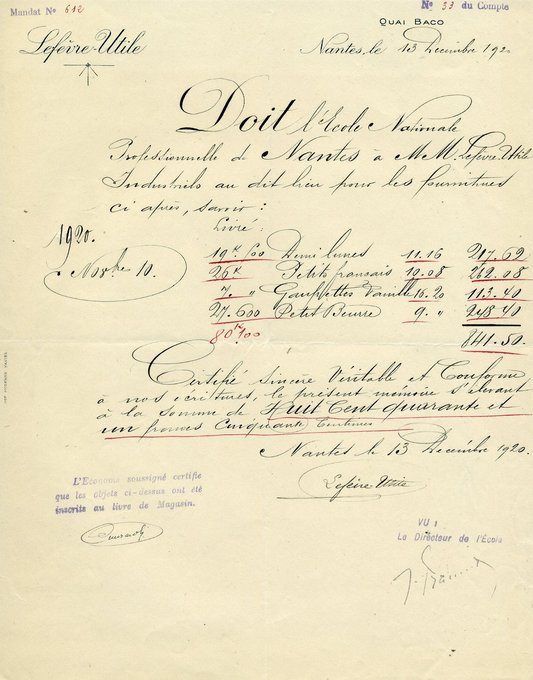 Mandat No 612
No 33 du Compte
QUAI BACO
Lefèvre-Utile
Nantes, le 13 Décembre 1920
Doit l'Ecole Nationale
Professionnelle de Nantes à MM. Lefèvre-Utile
Industriels au dit lieu pour les fournitures
ci après, savoir :
Livré :
1920.
Novbre 10.
19k500 Demi lunes 11.16 217.62
26k Petits français 10.08 262.08
7. " Gaufrettes Vanille 16.20 113.40
27.600 Petit Beurre 9. " 248.40
80k100 841.50
Certifié Sincère Véritable et Conforme
à nos écritures, le présent mémoire s'élevant
à la somme de Huit Cent quarante et
un francs Cinquante Centimes
Nantes le 13 Décembre 1920.
Lefèvre Utile
L'Econome soussigné certifie
que les objets ci-dessus ont été
inscrits au livre de Magasin.
VU :
Le Directeur de l'École